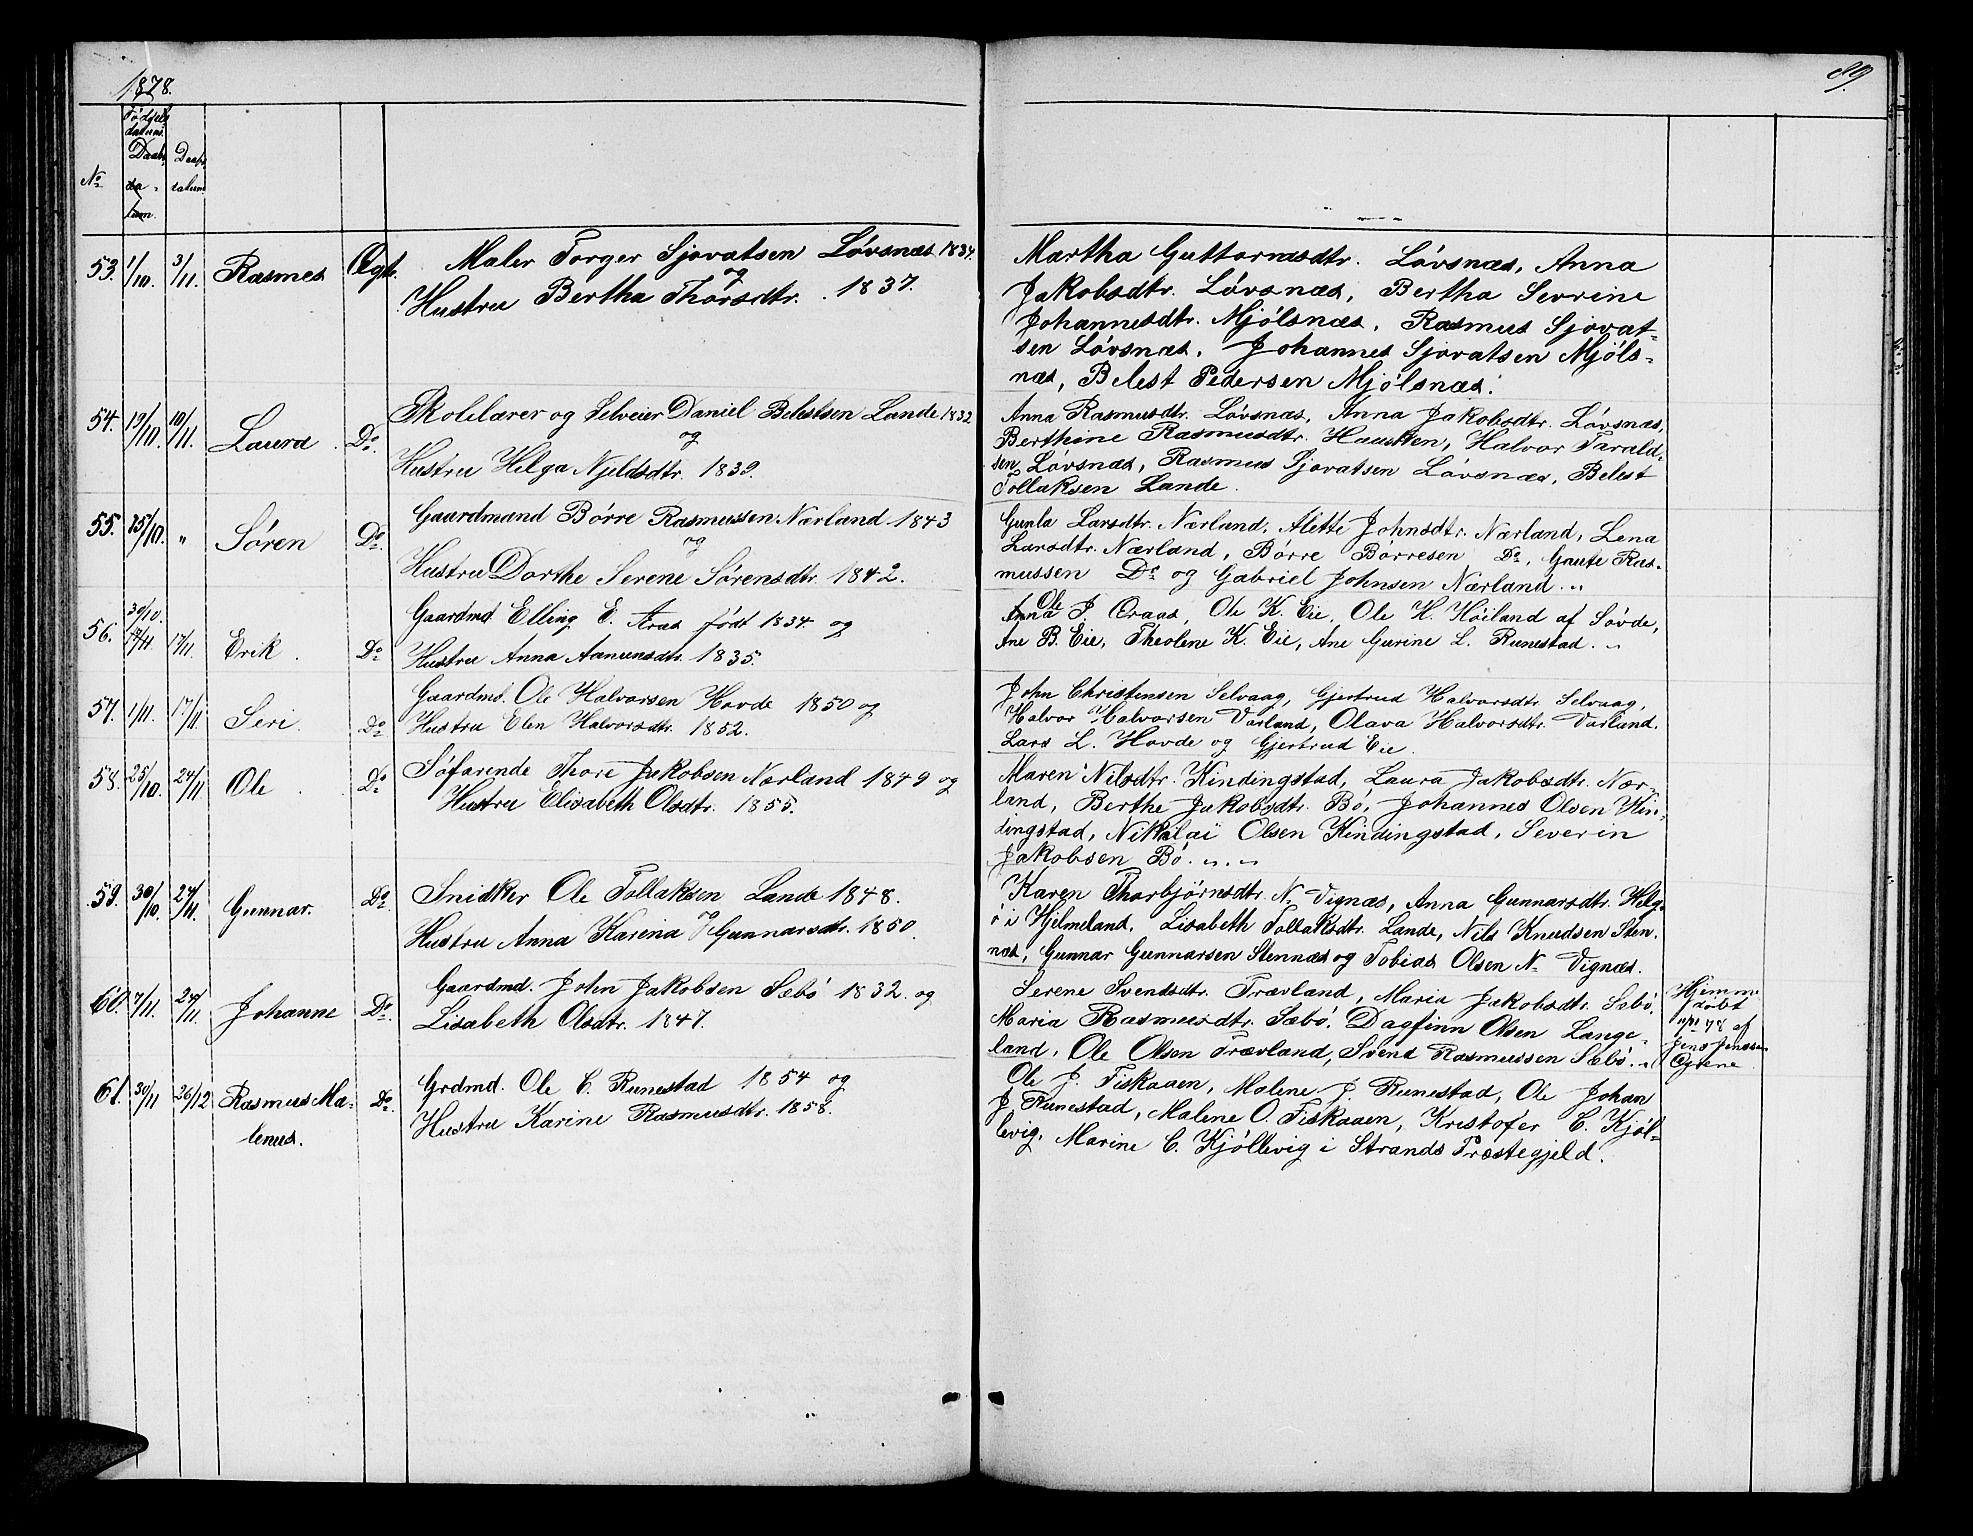 1878.
89.
Fødsels
datum.
Daabs
da-
tum.
Daabs
datum
No
53. 1/10. 3/11. Rasmus Ægt. Maler Torger Sjovatsen Løvsnæs 1834.
og
Hustru Bertha Thorsdtr. 1837.
Martha Guttormsdtr. Løvsnæs, Anna
Jakobsdtr. Løvsnæs, Bertha Sevrine
Johannesdtr. Mjølsnæs, Rasmus Sjovat-
sen Løvsnæs, Johannes Sjovatsen Mjøls-
næs, Belest Pedersen Mjølsnæs.
54. 19/10. 10/11. Laura Do. Skolelærer og Selveier Daniel Belestsen Lande 1832
og
Hustru Helga Njeldsdtr. 1839.
Anna Rasmusdtr. Løvsnæs, Anna Jakobsdtr. Løvsnæs,
Berthine Rasmusdtr. Hausken, Halvor Tarald-
sen Løvsnæs, Rasmus Sjovatsen Løvsnæs, Belest
Tollaksen Lande.
55. 25/10. " Søren Do. Gaardmand Børre Rasmussen Nærland 1843
og
Hustru Dorthe Serene Sørensdtr. 1842.
Gunla Larsdtr. Nærland, Alette Johnsdtr. Nærland, Lena
Larsdtr. Nærland, Børre Børresen Do, Gaute Ras-
mussen Do og Gabriel Johnsen Nærland.
30/10.
56. 17/11. 17/11. Erik Do Gaardmd. Elling E. Aras født 1834 og
Hustru Anna Aamunsdtr. 1835.
Ole
Anna P. Øraas, Ole K. Eie, Ole H. Høiland af Søvde,
Ane B. Eie, Theolene K. Eie, Ane Gurine L. Runestad.
57. 1/11. 17/11 Seri. Do Gaardmd. Ole Halvorsen Hovde 1850 og
Hustru Elen Halvorsdtr. 1852.
John Christensen Selvaag, Gjertrud Halvorsdtr Selvaag,
Halvor Halvorsen Varland, Olava Halvorsdtr. Varland.
Lars L. Hovde og Gjertrud Eie.
58. 25/10. 24/11 Ole Do Søfarende Thore Jakobsen Nærland 1849 og
Hustru Elisabeth Olsdtr. 1855.
Maren Nilsdtr. Kindingstad, Laura Jakobsdtr. Nær-
land, Berthe Jakobsdtr. Bø, Johannes Olsen Kin-
dingstad, Nikolai Olsen Kindingstad, Severin
Jakobsen Bø.
59. 30/10. 24/11. Gunnar. Do. Snidker Ole Tollaksen Lande 1848.
og
Hustru Anna Karina Gunnarsdtr. 1850.
Karen Thorbjørnsdtr. N. Vignæs, Anna Gunnarsdtr. Helg-
ø i Hjelmeland, Lisabeth Tollaksdtr. Lande, Nils Knudsen Sten-
næs, Gunnar Gunnarsen Stennæs og Tobias Olsen N. Vignæs.
60. 7/11. 24/11. Johanne Do. Gaardmd. John Jakobsen Sæbø 1832. og
Lisabeth Olsdtr. 1847.
Serene Svendsdtr. Trævland, Maria Jakobsdtr. Sæbø,
Maria Rasmusdtr. Sæbø. Dagfinn Olsen Lange-
land, Ole Olsen Trævland, Svend Rasmussen Sæbø.
Hjemme
døbt
78 af
Jens Jensen
61. 30/11 26/12 Rasmus Ma-
lenus.
Do. Grdmd. Ole C. Runestad 1854 og
Hustru Karine Rasmusdtr. 1858.
Ole J. Fiskaaen, Malene J. Runestad, Ole Johan
J. Runestad, Malene O. Fiskaaen, Kristofer C. Kjøl-
levig, Marine C. Kjøllevig i Strands Præstegjeld.